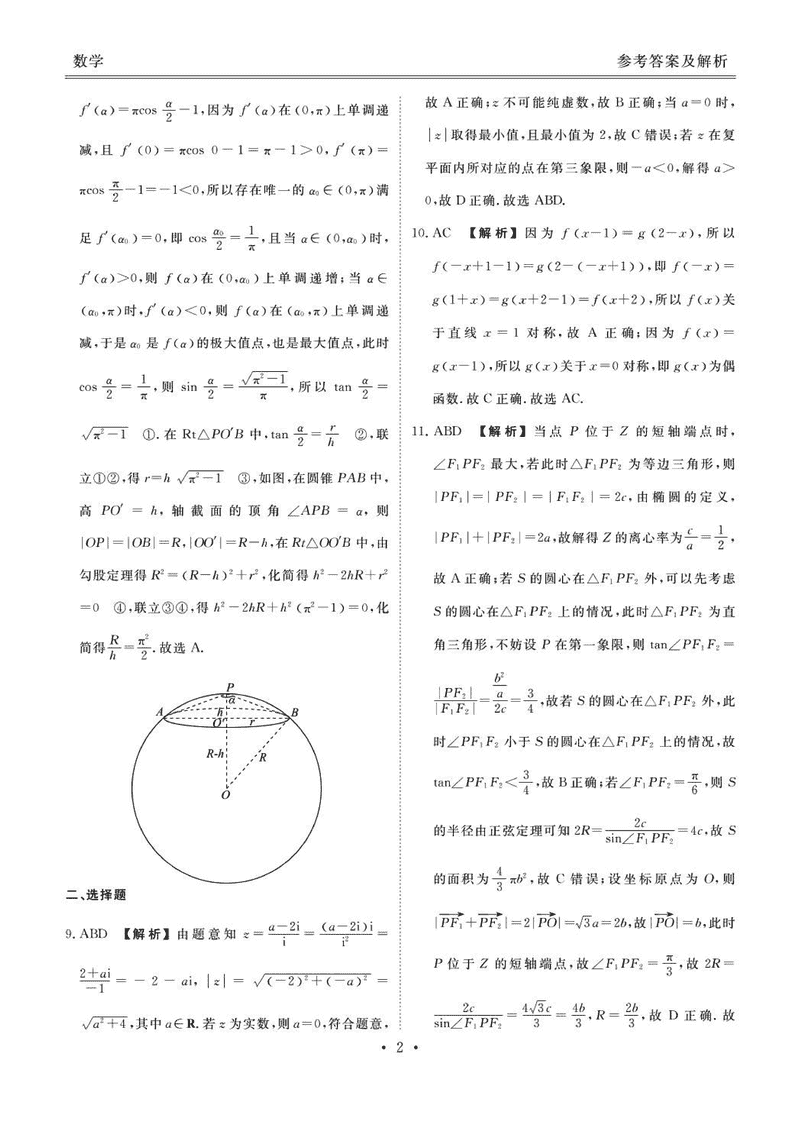 数学
参考答案及解析
f′(α)=πcos α/2−1,因为 f′(α)在(0,π)上单调递
减,且 f′(0)=πcos 0−1=π−1>0,f′(π)=
πcos π/2−1=−1<0,所以存在唯一的 α₀∈(0,π)满
足 f′(α₀)=0,即 cos α₀/2=1/π,且当 α∈(0,α₀)时,
f′(α)>0,则 f(α)在(0,α₀)上单调递增;当 α∈
(α₀,π)时,f′(α)<0,则 f(α)在(α₀,π)上单调递
减,于是 α₀ 是 f(α)的极大值点,也是最大值点,此时
cos α/2=1/π,则 sin α/2=√(π²−1)/π,所以 tan α/2=
√(π²−1) ①.在 Rt△PO′B 中,tan α/2=r/h ②,联
立①②,得 r=h√(π²−1) ③,如图,在圆锥 PAB 中,
高 PO′=h,轴截面的顶角∠APB=α,则
|OP|=|OB|=R,|OO′|=R−h,在 Rt△OO′B 中,由
勾股定理得 R²=(R−h)²+r²,化简得 h²−2hR+r²
=0 ④,联立③④,得 h²−2hR+h²(π²−1)=0,化
简得 R/h=π²/2.故选 A.
P
α
A
h
B
O′
r
R-h
R
O
二、选择题
9. ABD 【解析】由题意知 z=(a−2i)/i=(a−2i)i/i²=
(2+ai)/−1=−2−ai,|z|=√((−2)²+(−a)²)=
√(a²+4),其中 a∈R.若 z 为实数,则 a=0,符合题意,
故 A 正确;z 不可能纯虚数,故 B 正确;当 a=0 时,
|z|取得最小值,且最小值为 2,故 C 错误;若 z 在复
平面内所对应的点在第三象限,则−a<0,解得 a>
0,故 D 正确.故选 ABD.
10. AC 【解析】因为 f(x−1)=g(2−x),所以
f(−x+1−1)=g(2−(−x+1)),即 f(−x)=
g(1+x)=g(x+2−1)=f(x+2),所以 f(x)关
于直线 x=1 对称,故 A 正确;因为 f(x)=
g(x−1),所以 g(x)关于 x=0 对称,即 g(x)为偶
函数.故 C 正确.故选 AC.
11. ABD 【解析】当点 P 位于 Z 的短轴端点时,
∠F₁PF₂ 最大,若此时△F₁PF₂ 为等边三角形,则
|PF₁|=|PF₂|=|F₁F₂|=2c,由椭圆的定义,
|PF₁|+|PF₂|=2a,故解得 Z 的离心率为 c/a=1/2,
故 A 正确;若 S 的圆心在△F₁PF₂ 外,可以先考虑
S 的圆心在△F₁PF₂ 上的情况,此时△F₁PF₂ 为直
角三角形,不妨设 P 在第一象限,则 tan∠PF₁F₂=
|PF₂|/|F₁F₂|=(b²/a)/2c=3/4,故若 S 的圆心在△F₁PF₂ 外,此
时∠PF₁F₂ 小于 S 的圆心在△F₁PF₂ 上的情况,故
tan∠PF₁F₂<3/4,故 B 正确;若∠F₁PF₂=π/6,则 S
的半径由正弦定理可知 2R=2c/sin∠F₁PF₂=4c,故 S
的面积为 4/3 πb²,故 C 错误;设坐标原点为 O,则
|PF₁→+PF₂→|=2|PO→|=√3a=2b,故|PO→|=b,此时
P 位于 Z 的短轴端点,故∠F₁PF₂=π/3,故 2R=
2c/sin∠F₁PF₂=4√3c/3=4b/3,R=2b/3,故 D 正确.故
• 2 •